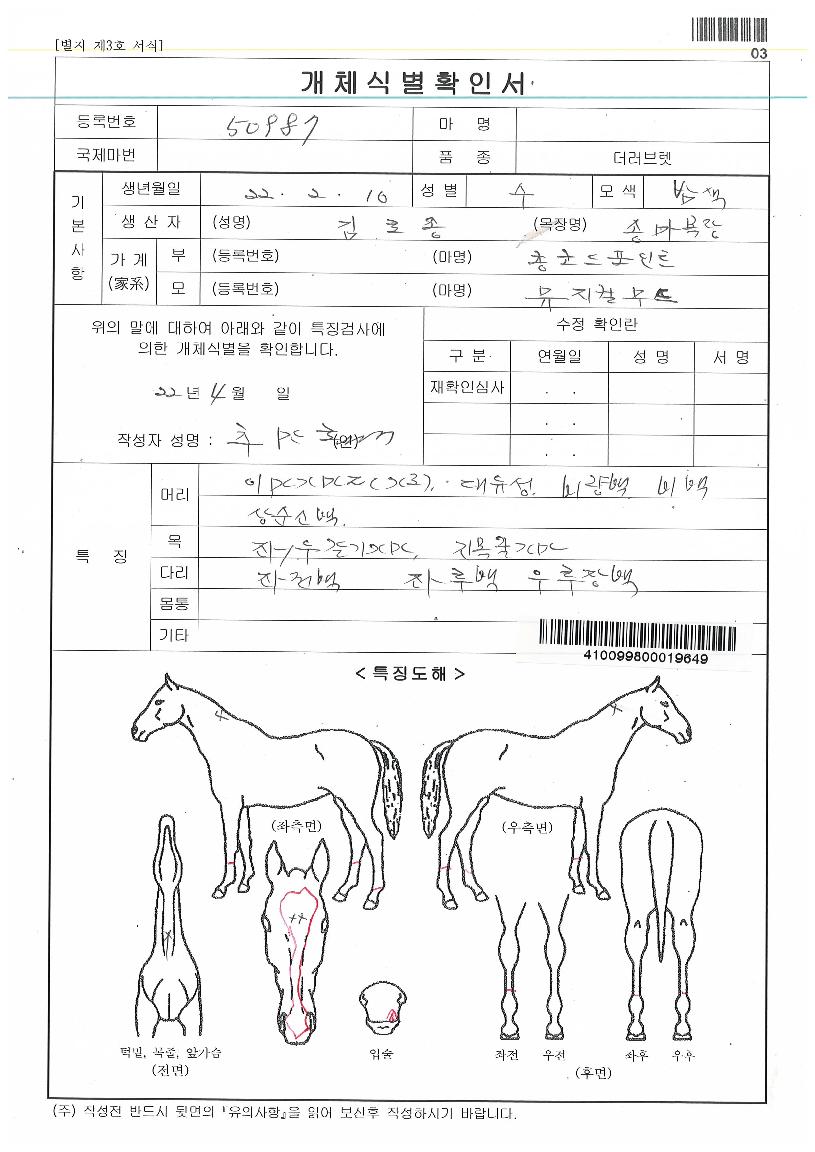 [별지 제3호 서식]
03
개체식별확인서
등록번호 50987 마 명
국제마번 품 종 더러브렛
기본사항
생년월일 22 . 2 . 10 성 별 수 모 색
생 산 자 (성명) 김 종 (목장명) 종마목장
가 계 (家系) 부 (등록번호) (마명) 포인트
모 (등록번호) (마명) 뮤지컬
위의 말에 대하여 아래와 같이 특징검사에
의한 개체식별을 확인합니다.
22 년 4 월 일
작성자 성명 : 추
수정 확인란
구 분 연월일 성 명 서 명
재확인심사 . .
. .
. .
특 징
머리 대유성. 비량백 비백
상순소백.
목
다리 좌전백 좌후백 우후장백
몸통
기타
410099800019649
< 특징도해 >
(좌측면) (우측면)
턱밑, 목줄, 앞가슴
(전면)
입술
좌전 우전 좌후 우후
(후면)
(주) 작성전 반드시 뒷면의 『유의사항』을 읽어 보신후 작성하시기 바랍니다.